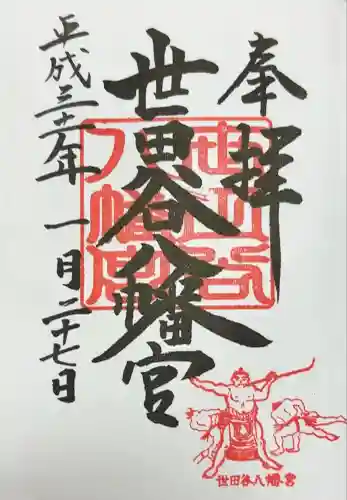 奉拝
世田谷八幡宮
平成三十一年一月二十七日
世田谷
八幡宮
世田谷八幡宮